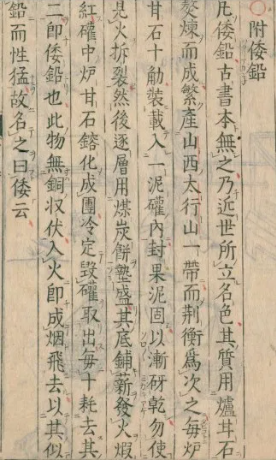 ○附倭鉛
凡倭鉛古書本無之乃近世所立名色其質用爐甘石
熬煉而成繁產山西太行山一帶而荊衡爲次之每炉
甘石十觔裝載入一泥礶內封果泥固以漸砑乾勿使
見火拆裂然後逐層用煤炭餅墊盛其底鋪薪發火煆
紅礶中炉甘石鎔化成團冷定毀礶取出每十耗去其
二即倭鉛也此物無銅収伏入火即成烟飛去以其似
鉛而性猛故名之曰倭云